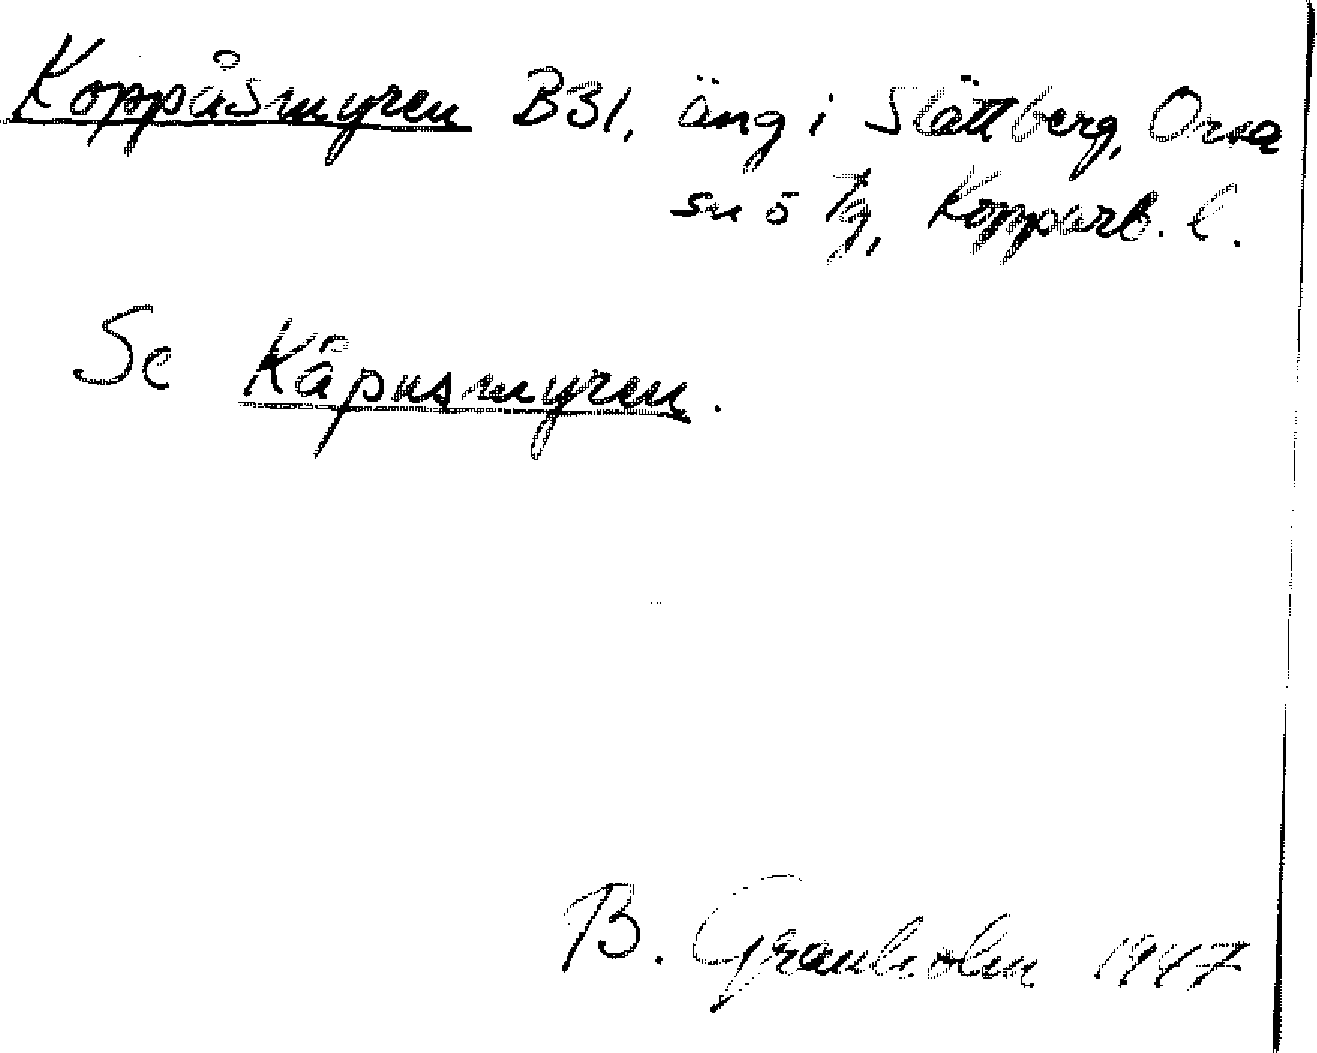 Koppåsmyren B31, äng i Slättberg, Orsa
sn ö tg, Kopparb. l.
Se Käpusmyren.
B. Granholm 1947